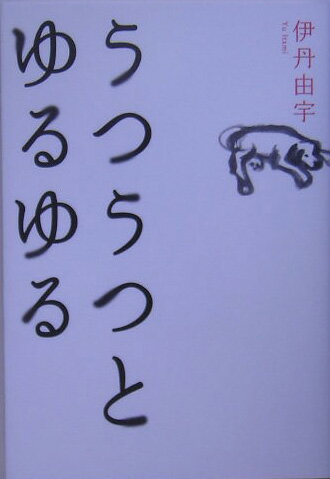 伊丹由宇
Yu Itami
うつうつと
ゆるゆる